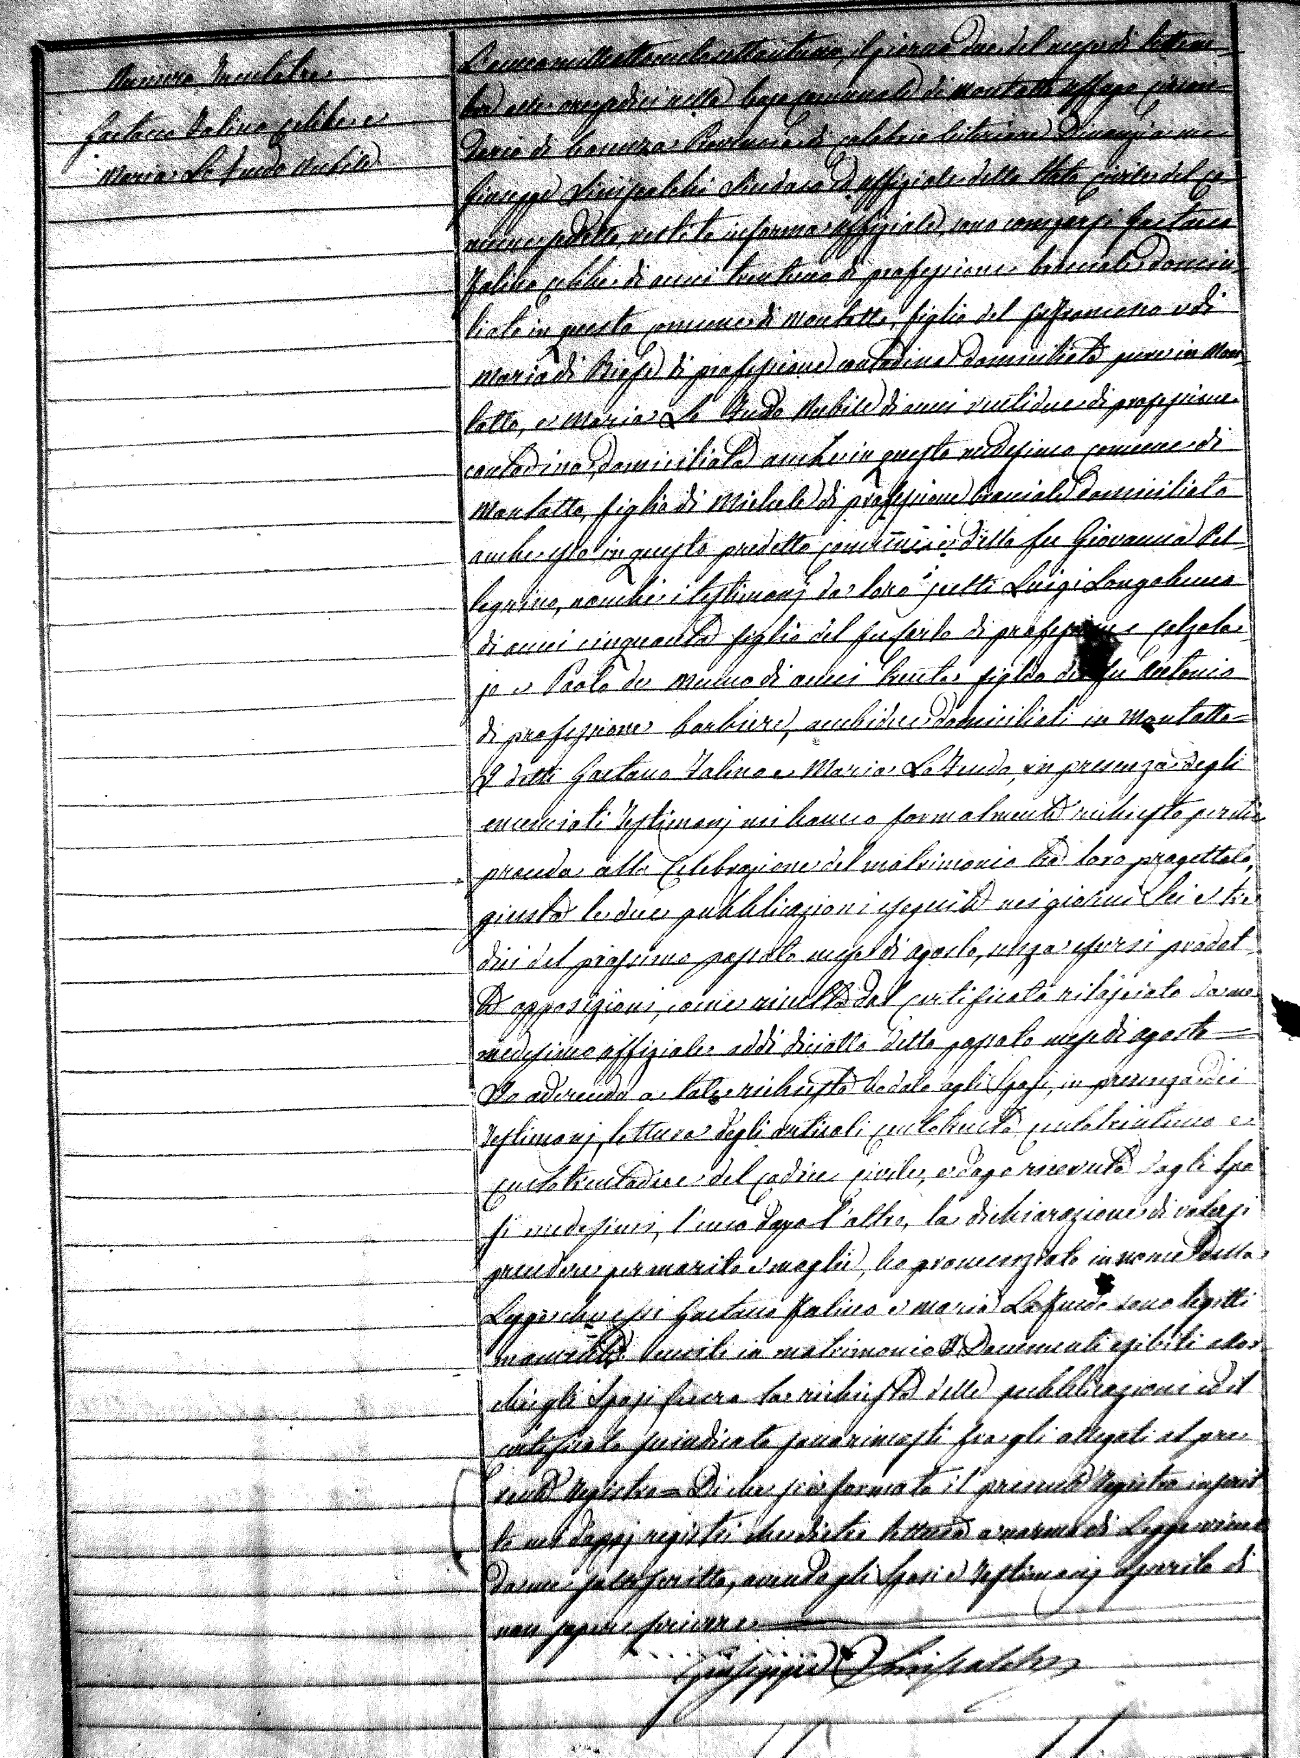 Numero
Gaetano Falino celibe e
Maria Lo Feudo Nubile
L'anno milleottocentosettantuno, il giorno due del mese di Settem-
bre alle ore quindici nella Casa comunale di Montalto Uffugo circon-
dario di Cosenza Provincia di Calabria Citeriore Dinanzi a me
Giuseppe Sindaco ed uffiziale dello Stato Civile del Co-
mune suddetto, vestito in forma uffiziale, sono comparsi Gaetano
Falino celibe di anni trentuno di professione bracciale domici-
liato in questo comune di Montalto, figlio del fu Francesco e di
Maria di Biase di professione contadina domiciliata pure in Mon-
talto, e Maria Lo Feudo Nubile di anni ventidue di professione
contadina, domiciliata anche in questo medesimo comune di
Montalto, figlia di Michele di professione bracciale domiciliato
anche esso in questo predetto comune e della fu Giovanna Pel-
legrino, nonché i testimonj da loro scelti Luigi Longobucco
di anni cinquanta figlio del fu Carlo di professione calzola-
jo e Paolo de Mundo di anni trenta figlio del fu Antonio
di professione barbiere, ambidue domiciliati in Montalto=
I detti Gaetano Falino e Maria Lo Feudo, in presenza degli
enunciati Testimonj mi hanno formalmente richiesto perché
proceda alla Celebrazione del matrimonio tra loro progettato,
giusta le due pubblicazioni eseguite nei giorni Sei e tre-
dici del prossimo passato mese di agosto, senza essersi prodot-
te opposizioni, come risulta dal certificato rilasciato da me
medesimo uffiziale addì diciotto detto passato mese di agosto=
Io aderendo a tale richiesta ho dato agli Sposi, in presenza dei
Testimonj, lettura degli articoli centotrenta centotrentuno e
centotrentadue del Codice Civile, e dopo ricevuta dagli Spo-
si medesimi, l'uno dopo l'altro, la dichiarazione di volersi
prendere per marito e moglie, ho pronunziato in nome della
Legge che essi Gaetano Falino e Maria Lo Feudo sono legitti-
mamente uniti in matrimonio I Documenti esibiti
gli Sposi la richiesta delle pubblicazioni ed il
certificato suindicato sono rimasti fra gli allegati al pre-
sente registro= Di che si è formato il presente registro inscrit-
to nei doppj registri che dietro lettura a norma di Legge
da me sottoscritto, avendo gli Sposi e Testimonj asserito di
non sapere scrivere
Giuseppe